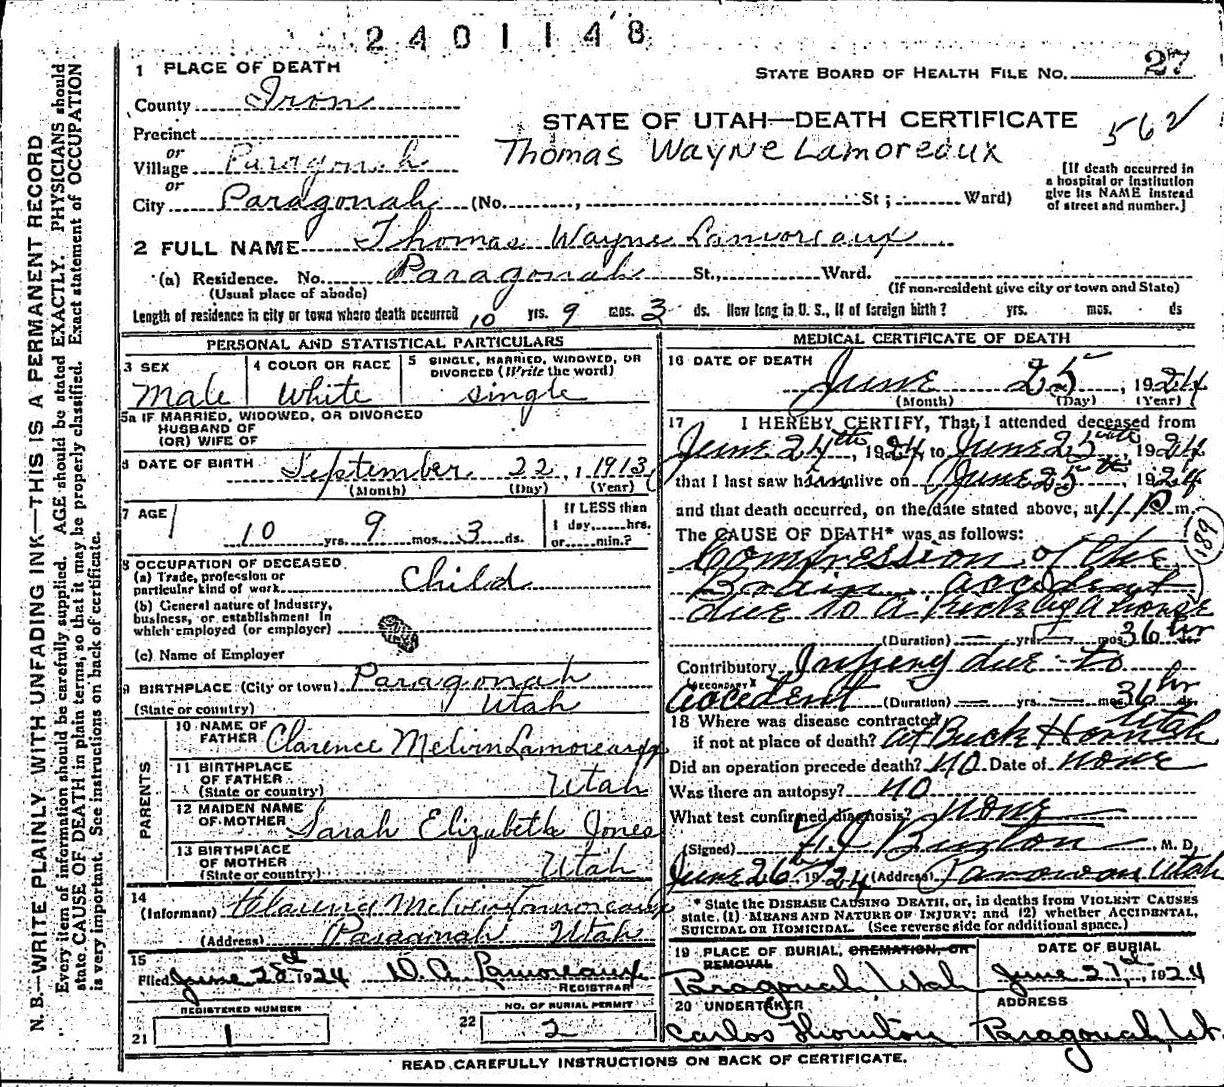 2401148
1 PLACE OF DEATH
STATE BOARD OF HEALTH FILE NO. 27
County Iron
STATE OF UTAH—DEATH CERTIFICATE 562
Precinct
or
Thomas Wayne Lamoreaux
Village Paragonah
[If death occurred in a hospital or institution give its NAME instead of street and number.]
or
City Paragonah (No. , St ; Ward)
2 FULL NAME Thomas Wayne Lamoreaux
(a) Residence. No. Paragonah St., Ward.
(Usual place of abode) (If non-resident give city or town and State)
Length of residence in city or town where death occurred 10 yrs. 9 mos. 3 ds. How long in U. S., if of foreign birth? yrs. mos. ds
PERSONAL AND STATISTICAL PARTICULARS
3 SEX Male
4 COLOR OR RACE White
5 SINGLE, MARRIED, WIDOWED, OR DIVORCED (Write the word) single
5a IF MARRIED, WIDOWED, OR DIVORCED
HUSBAND OF
(OR) WIFE OF
6 DATE OF BIRTH September 22, 1913
(Month) (Day) (Year)
7 AGE 10 yrs. 9 mos. 3 ds.
If LESS than
1 day, hrs.
or min.?
8 OCCUPATION OF DECEASED
(a) Trade, profession or
particular kind of work Child
(b) General nature of Industry,
business, or establishment in
which employed (or employer)
(c) Name of Employer
9 BIRTHPLACE (City or town) Paragonah
(State or country) Utah
PARENTS
10 NAME OF
FATHER Clarence Melvin Lamoreaux
11 BIRTHPLACE
OF FATHER
(State or country) Utah
12 MAIDEN NAME
OF MOTHER Sarah Elizabeth Jones
13 BIRTHPLACE
OF MOTHER
(State or country) Utah
14
(Informant) Clarence Melvin Lamoreaux
(Address) Paragonah Utah
15
Filed June 28th 1924 D. A. Lamoreaux
REGISTRAR
REGISTERED NUMBER
21 1
NO. OF BURIAL PERMIT
22 2
MEDICAL CERTIFICATE OF DEATH
16 DATE OF DEATH June 25, 1924
(Month) (Day) (Year)
17 I HEREBY CERTIFY, That I attended deceased from
June 24th, 1924, to June 25th, 1924
that I last saw him alive on June 25th, 1924
and that death occurred, on the date stated above, at 11 P m.
The CAUSE OF DEATH* was as follows:
Compression of the
Brain accident
due to a kick by a horse
189
(Duration) yrs. mos. 36 hr
Contributory Injury due to
(SECONDARY)
accedent (Duration) yrs. mos. 36 hr ds.
18 Where was disease contracted
if not at place of death? at Buck Horn Utah
Did an operation precede death? no Date of none
Was there an autopsy? no
What test confirmed diagnosis? none
(Signed) Burton, M. D.
June 26, 1924 (Address) Parowan Utah
* State the DISEASE CAUSING DEATH, or, in deaths from VIOLENT CAUSES
state, (1) MEANS AND NATURE OF INJURY; and (2) whether ACCIDENTAL,
SUICIDAL OR HOMICIDAL. (See reverse side for additional space.)
19 PLACE OF BURIAL, CREMATION, OR
REMOVAL
Paragonah, Utah
DATE OF BURIAL
June 27th, 1924
20 UNDERTAKER
Carlos Thornton
ADDRESS
Paragonah, Ut.
READ CAREFULLY INSTRUCTIONS ON BACK OF CERTIFICATE.
N. B.—WRITE PLAINLY WITH UNFADING INK—THIS IS A PERMANENT RECORD
Every item of information should be carefully supplied. AGE should be stated EXACTLY. PHYSICIANS should
state CAUSE OF DEATH in plain terms, so that it may be properly classified. Exact statement of OCCUPATION
is very important. See instructions on back of certificate.